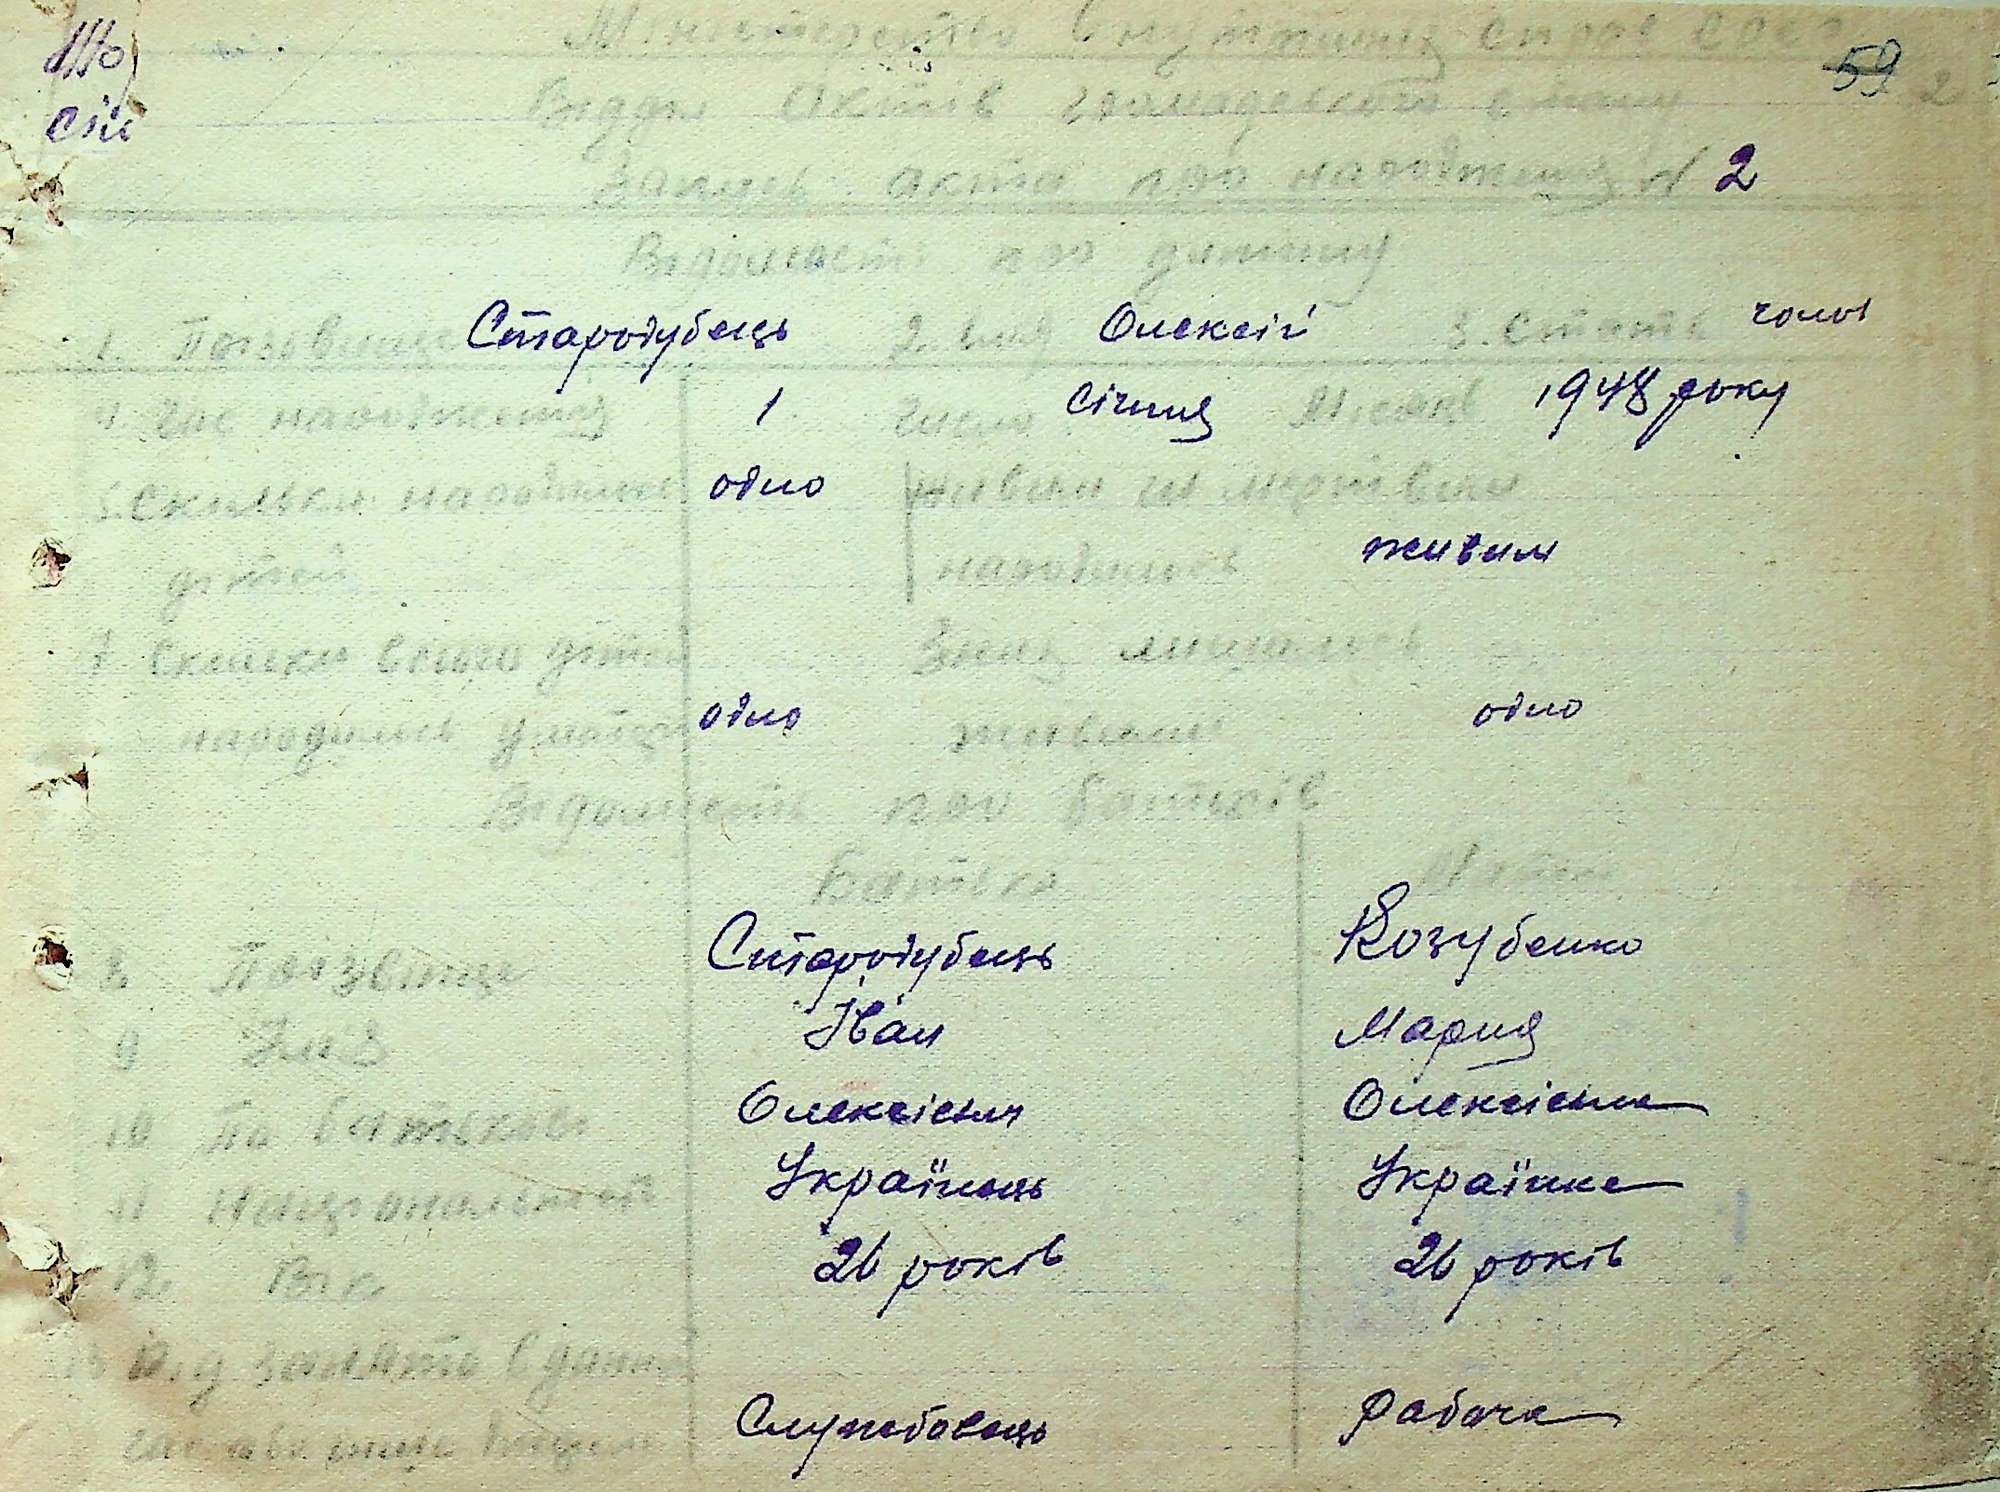 59 2
Відділ Актів громадського стану
Запись акта про народження N 2
Відомості про дитину
1. Прізвище Стародубець 2. Імя Олексій 3. Стать чолов
4. Час народження 1 число січня місяць 1948 року
5. Скильки народилось одно живим чи мертвим
дітей народилось живим
7 Скильки всього дітей Зних лишилось
народилось у матери одно живими одно
Відомость про батьків
Батько Мати
8. Прізвище Стародубець Козубенко
9 Імя Іван Мария
10 По батькові Олексієвич Олексіевна
11 Національність Українець Українка
12. Вік 26 років 26 років
13 занято в даний
Службовець рабоча